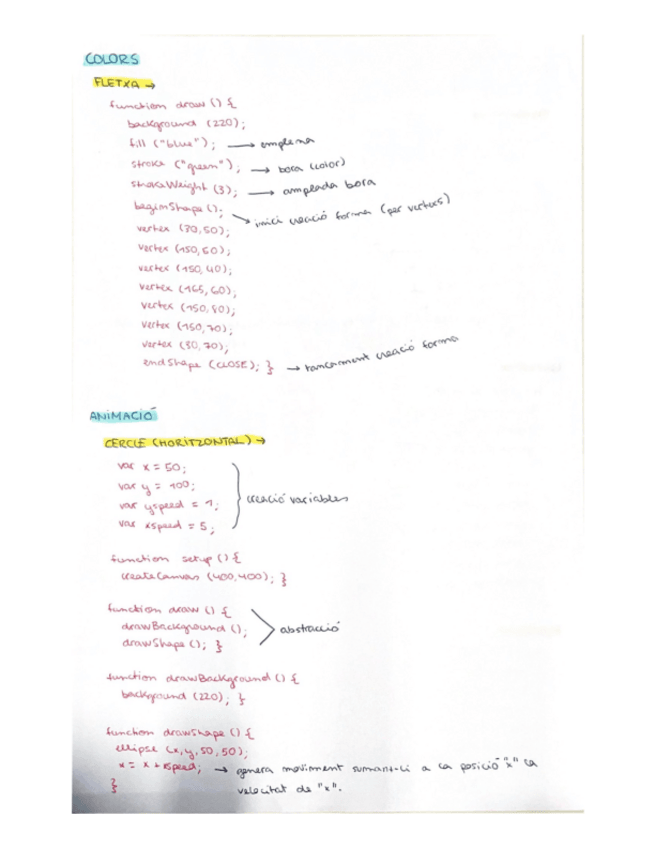 COLORS
FLETXA →
function draw () {
background (220);
fill ("blue"); → omplena
stroke ("green"); → bora (color)
strokeWeight (3); → amplada bora
beginShape (); → inici creació forma (per vertexs)
vertex (30,50);
vertex (150,50);
vertex (150,40);
vertex (165,60);
vertex (150,80);
vertex (150,70);
vertex (30,70);
endShape (CLOSE); } → tancament creació forma
ANIMACIÓ
CERCLE (HORITZONTAL) →
var x = 50;
var y = 100;
var yspeed = 1;
var xspeed = 5;
creació variables
function setup () {
createCanvas (400,400); }
function draw () {
drawBackground ();
drawShape (); }
abstracció
function drawBackground () {
background (220); }
function drawShape () {
ellipse (x,y,50,50);
x = x + xspeed; → genera moviment sumant-li a la posició "x" la
} velocitat de "x".